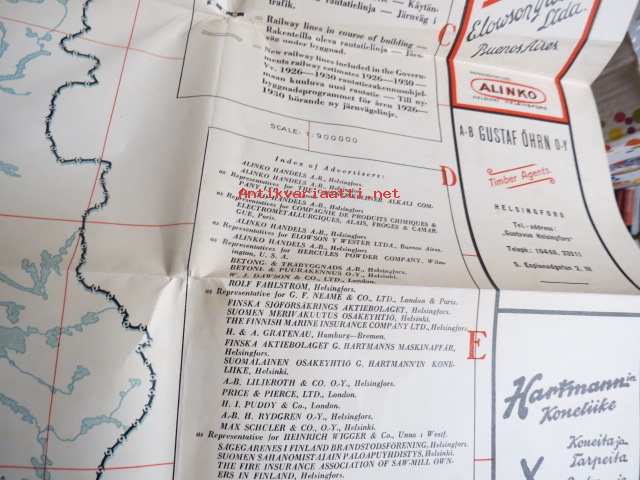 trafik.
tig rautatielinja — Järnväg i
Railway lines in course of building —
Rakenteilla oleva rautatielinja — Järn-
väg under byggnad.
New railway lines included in the Govern-
ments railway estimates 1926—1930 —
Vv. 1926—1930 rautatierakennusohjel-
maan kuuluva uusi rautatie — Till ny-
byggnadsprogrammet för åren 1926—
1930 hörande ny järnvägslinje.
SCALE: 1:900000
Index of Advertisers:
ALINKO HANDELS A.B., Helsingfors.
ALINKO HANDELS A.B., Helsingfors.
as Representatives for
ALKALI COM-
ALINKO HANDELS A.B., Helsingfors
as Representatives for COMPAGNIE DE PRODUITS CHIMIQUES &
ELECTROMETALLURGIQUES, ALAIS, FROGES & CAMAR-
GUE, Paris.
ALINKO HANDELS A.B., Helsingfors.
as Representatives for ELOWSON Y WESTER LTDA., Buenos Aires.
ALINKO HANDELS A.B., Helsingfors.
as Representatives for HERCULES POWDER COMPANY, Wilm-
ington, U. S. A.
BETONG- & TRÄBYGGNADS A.B., Helsingfors.
BETONI- & PUURAKENNUS O.Y., Helsinki.
W. J. DAWSON & CO., LTD., London.
ROLF FAHLSTRÖM, Helsingfors.
as Representative for G. F. NEAME & CO., LTD., London & Paris.
FINSKA SJÖFÖRSÄKRINGS AKTIEBOLAGET, Helsingfors.
SUOMEN MERIVAKUUTUS OSAKEYHTIÖ, Helsinki.
THE FINNISH MARINE INSURANCE COMPANY LTD., Helsingfors.
H. & A. GRATENAU, Hamburg—Bremen.
FINSKA AKTIEBOLAGET G. HARTMANNS MASKINAFFÄR,
Helsingfors.
SUOMALAINEN OSAKEYHTIÖ G. HARTMANN'IN KONE-
LIIKE, Helsinki.
A.-B. LILJEROTH & CO. O.-Y., Helsingfors.
PRICE & PIERCE, LTD., London.
H. I. PUDDY & Co., London.
A.-B. H. RYDGREN O.-Y., Helsingfors.
MAX SCHULER & CO., O.-Y., Helsinki.
as Representative for HEINRICH WIGGER & Co., Unna i Westf.
SÅGEGARENES I FINLAND BRANDSTODSFÖRENING, Helsingfors.
SUOMEN SAHANOMISTAJAIN PALOAPUYHDISTYS, Helsinki.
THE FIRE INSURANCE ASSOCIATION OF SAW-MILL OWN-
ERS IN FINLAND, Helsingfors.
C
D
E
Ltda.
Buenos Aires
ALINKO
A-B GUSTAF ÖHRN O-Y
Timber Agents.
HELSINGFORS
Tel.-address:
S. Esplanadgatan 2, 18
Hartmannin
Koneliike
Koneita ja
Tarpeita
Antikvariaatti.net